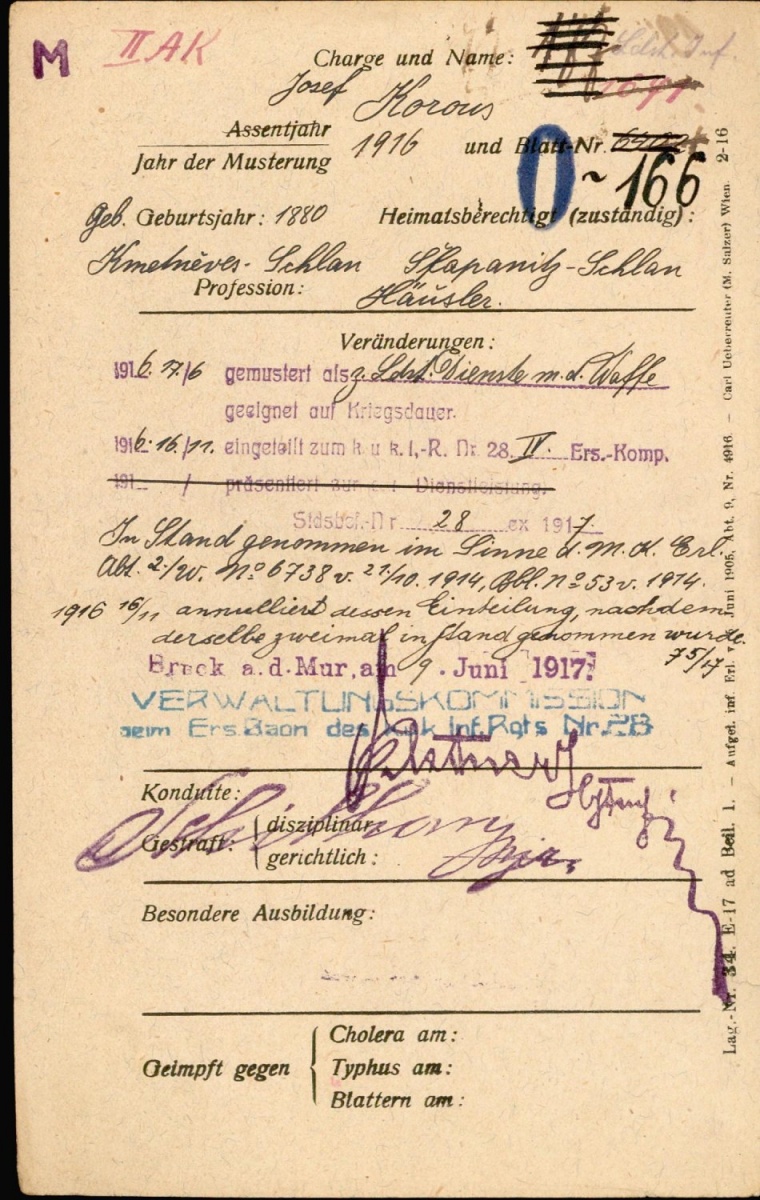 M II AK
Charge und Name: Ldst. Inf.
Josef Korous 1691
Assentjahr
Jahr der Musterung 1916 und Blatt-Nr.
0-166
geb. Geburtsjahr: 1880 Heimatsberechtigt (zuständig):
Kmetněves-Schlan Stapanitz-Schlan
Profession: Häusler.
Veränderungen:
1916 17/6 gemustert als z. Ldst. Dienste m. d. Waffe
geeignet auf Kriegsdauer.
1916 16/11. eingeteilt zum k. u. k. I.-R. Nr. 28. IV. Ers.-Komp.
191 / präsentiert zur Dienstleistung.
Stdsbef.-Nr. 28 ex 1917
In Stand genommen im Sinne d. M. K. Erl.
Abt. 2./W. No 6738 v. 21/10. 1914, Bbl. No 53 v. 1914.
1916 16/11 annulliert dessen Einteilung, nachdem
derselbe zweimal in Stand genommen wurde.
75/17
Bruck a. d. Mur, am 9. Juni 1917.
VERWALTUNGSKOMMISSION
beim Ers. Baon des k.u.k. Inf. Rgts Nr. 28
Konduite:
Gestraft: disziplinar
gerichtlich:
Mjr.
Besondere Ausbildung:
Geimpft gegen
Cholera am:
Typhus am:
Blattern am:
Lag.-Nr. 34. E-17 ad Beil. 1. — Aufgel. inf. Erl. v. Juni 1905, Abt. 9, Nr. 4916. — Carl Ueberreuter (M. Salzer) Wien. 2-16